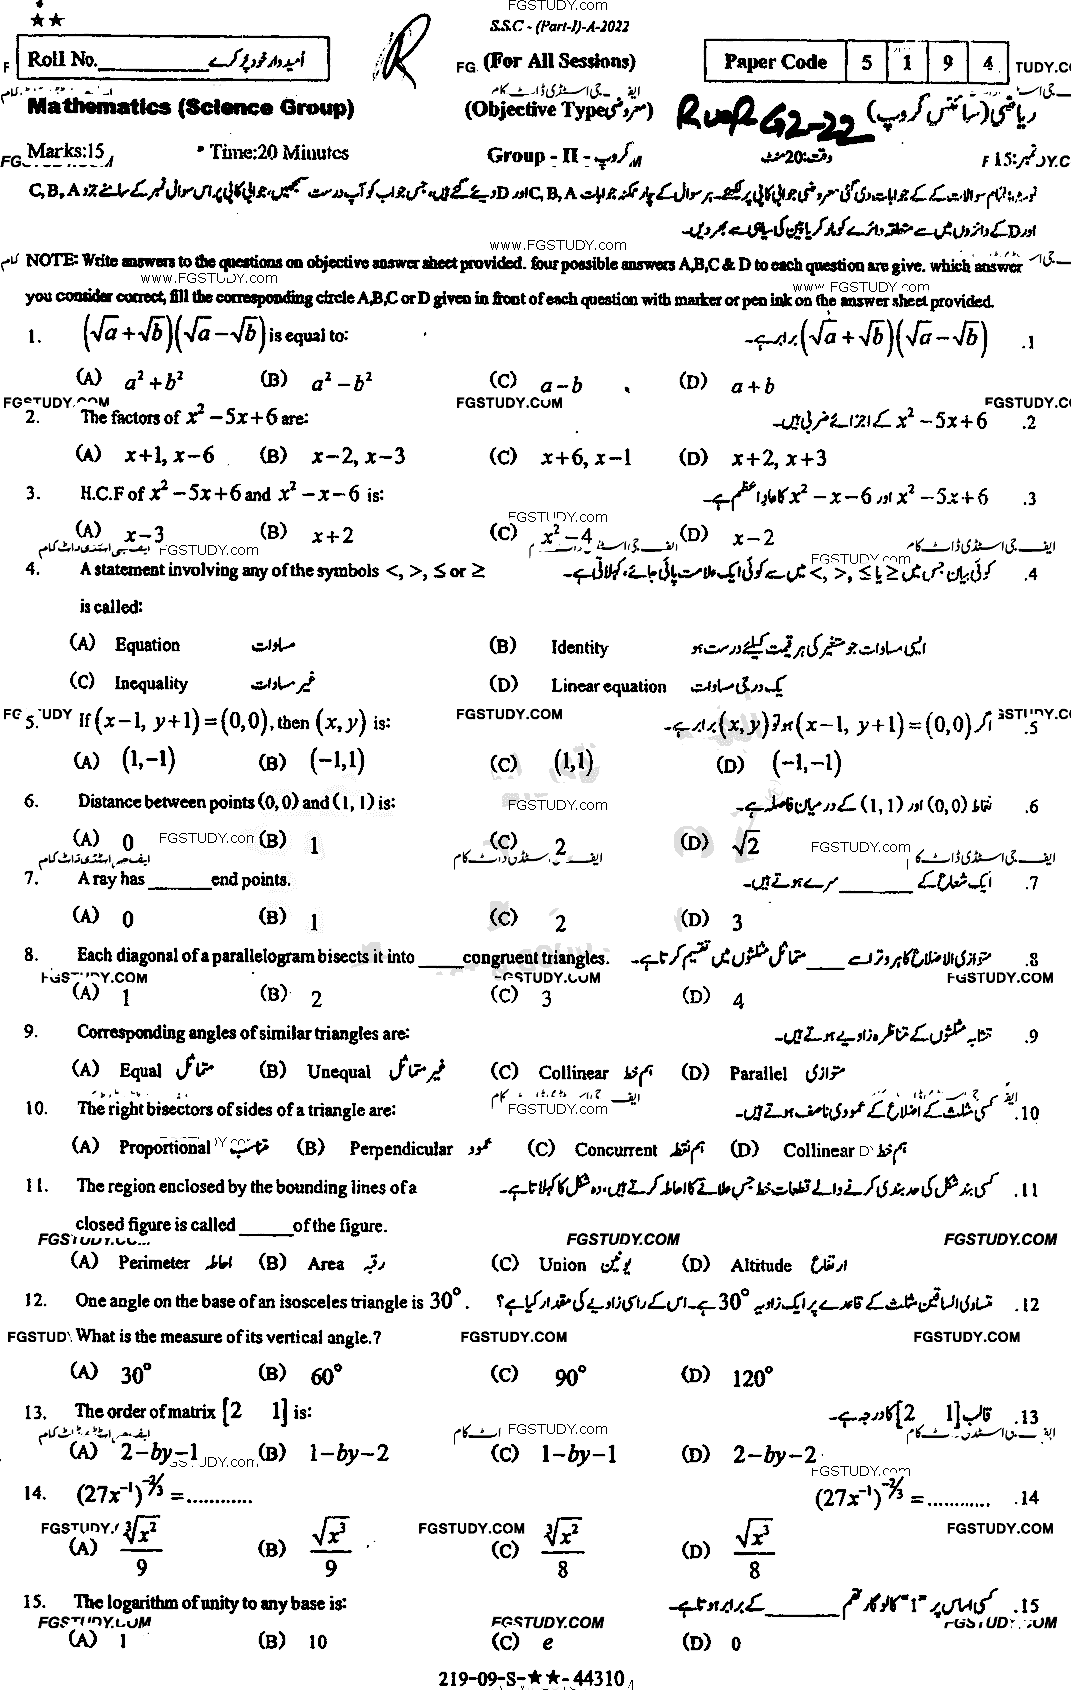 FGSTUDY.com
★★
S.S.C - (Part-I)-A-2022
Roll No.__________ امیدوار خود پُر کرے
(For All Sessions)
Paper Code 5 1 9 4
Mathematics (Science Group)
(Objective Type معروضی)
ریاضی (سائنس گروپ)
Marks:15
Time:20 Minutes
Group - II - گروپ
وقت:20 منٹ
نمبر:15
NOTE: Write answers to the questions on objective answer sheet provided. four possible answers A,B,C & D to each question are give. which answer
www.FGSTUDY.com
you consider correct, fill the corresponding circle A,B,C or D given in front of each question with marker or pen ink on the answer sheet provided.
1. (√a + √b)(√a − √b) is equal to: (√a + √b)(√a − √b) برابر ہے۔ .1
(A) a² + b² (B) a² − b² (C) a − b (D) a + b
FGSTUDY.COM
2. The factors of x² − 5x + 6 are: x² − 5x + 6 کے اجزائے ضربی ہیں۔ .2
(A) x+1, x−6 (B) x−2, x−3 (C) x+6, x−1 (D) x+2, x+3
3. H.C.F of x² − 5x + 6 and x² − x − 6 is: x² − 5x + 6 اور x² − x − 6 کا عاد اعظم ہے۔ .3
(A) x−3 (B) x+2 (C) x²−4 (D) x−2
FGSTUDY.com
4. A statement involving any of the symbols <, >, ≤ or ≥ کوئی بیان جس میں <, >, ≤ یا ≥ میں سے کوئی ایک علامت پائی جائے، کہلاتی ہے۔ .4
is called:
(A) Equation مساوات (B) Identity ایسی مساوات جو متغیر کی ہر قیمت کیلئے درست ہو
(C) Inequality غیر مساوات (D) Linear equation یک درجی مساوات
5. If (x−1, y+1) = (0,0), then (x, y) is: اگر (x−1, y+1) = (0,0) ہو تو (x, y) برابر ہے۔ .5
(A) (1,−1) (B) (−1,1) (C) (1,1) (D) (−1,−1)
6. Distance between points (0, 0) and (1, 1) is: نقاط (0,0) اور (1,1) کے درمیان فاصلہ ہے۔ .6
(A) 0 (B) 1 (C) 2 (D) √2
7. A ray has ______ end points. ایک شعاع کے ______ سرے ہوتے ہیں۔ .7
(A) 0 (B) 1 (C) 2 (D) 3
8. Each diagonal of a parallelogram bisects it into _____ congruent triangles. متوازی الاضلاع کا ہر وتر اسے ____ متماثل مثلثوں میں تقسیم کرتا ہے۔ .8
(A) 1 (B) 2 (C) 3 (D) 4
9. Corresponding angles of similar triangles are: متشابہ مثلثوں کے متناظرہ زاویے ہوتے ہیں۔ .9
(A) Equal متماثل (B) Unequal غیر متماثل (C) Collinear ہم خط (D) Parallel متوازی
10. The right bisectors of sides of a triangle are: کسی مثلث کے اضلاع کے عمودی ناصف ہوتے ہیں۔ .10
(A) Proportional متناسب (B) Perpendicular عمود (C) Concurrent ہم نقطہ (D) Collinear ہم خط
11. The region enclosed by the bounding lines of a کسی بند شکل کی حد بندی کرنے والے قطعات خط جس علاقے کا احاطہ کرتے ہیں، وہ شکل کا کہلاتا ہے۔ .11
closed figure is called _____ of the figure.
FGSTUDY.COM
(A) Perimeter احاطہ (B) Area رقبہ (C) Union یونین (D) Altitude ارتفاع
12. One angle on the base of an isosceles triangle is 30°. متساوی الساقین مثلث کے قاعدے پر ایک زاویہ 30° ہے۔ اس کے راسی زاویے کی مقدار کیا ہے؟ .12
What is the measure of its vertical angle.?
(A) 30° (B) 60° (C) 90° (D) 120°
13. The order of matrix [2 1] is: قالب [2 1] کا درجہ ہے۔ .13
(A) 2−by−1 (B) 1−by−2 (C) 1−by−1 (D) 2−by−2
14. (27x⁻¹)^(−2/3) = ............ (27x⁻¹)^(−2/3) = ............ .14
(A) ∛x²/9 (B) √x³/9 (C) ∛x²/8 (D) √x³/8
15. The logarithm of unity to any base is: کسی اساس پر "1" کا لوگارتھم ______ کے برابر ہوتا ہے۔ .15
(A) 1 (B) 10 (C) e (D) 0
219-09-S-★★-44310